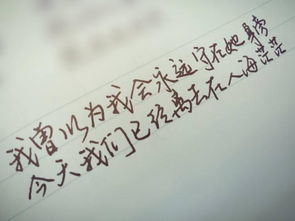 我曾以为我会永远守在她身旁
今天我们已经离去在人海茫茫